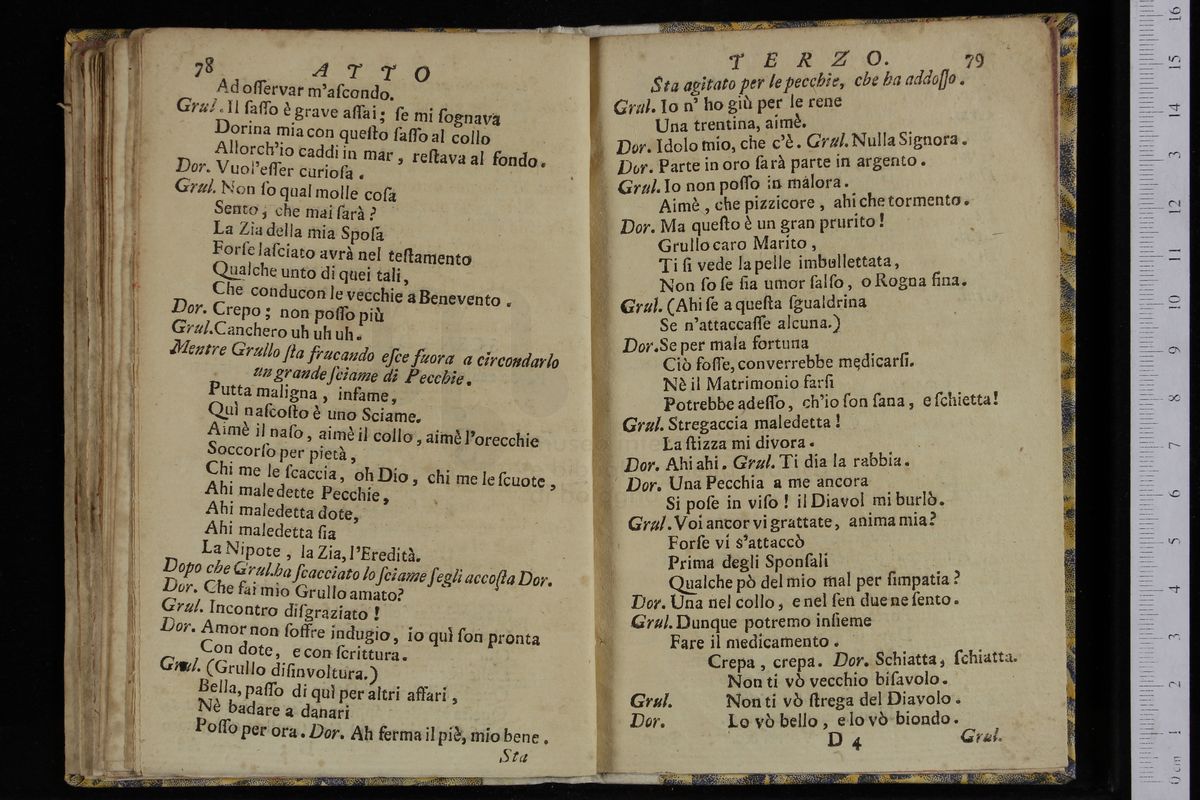 78 ATTO
Ad oſſervar m'aſcondo.
Grul. Il ſaſſo è grave aſſai; ſe mi ſognava
Dorina mia con queſto ſaſſo al collo
Allorch'io caddi in mar, reſtava al fondo.
Dor. Vuol'eſſer curioſa.
Grul. Non ſo qual molle coſa
Sento, che mai ſarà?
La Zia della mia Spoſa
Forſe laſciato avrà nel teſtamento
Qualche unto di quei tali,
Che conducon le vecchie a Benevento.
Dor. Crepo; non poſſo più
Grul. Canchero uh uh uh.
Mentre Grullo ſta frucando eſce fuora a circondarlo
un grande ſciame di Pecchie.
Putta maligna, infame,
Quì naſcoſto è uno Sciame.
Aimè il naſo, aimè il collo, aimè l'orecchie
Soccorſo per pietà,
Chi me le ſcaccia, oh Dio, chi me le ſcuote,
Ahi maledette Pecchie,
Ahi maledetta dote,
Ahi maledetta ſia
La Nipote, la Zia, l'Eredità.
Dopo che Grul. ha ſcacciato lo ſciame ſegli accoſta Dor.
Dor. Che fai mio Grullo amato?
Grul. Incontro diſgraziato!
Dor. Amor non ſoffre indugio, io quì ſon pronta
Con dote, e con ſcrittura.
Grul. (Grullo diſinvoltura.)
Bella, paſſo di quì per altri affari,
Nè badare a danari
Poſſo per ora. Dor. Ah ferma il piè, mio bene.
Sta
TERZO. 79
Sta agitato per le pecchie, che ha addoſſo.
Grul. Io n' ho giù per le rene
Una trentina, aimè.
Dor. Idolo mio, che c'è. Grul. Nulla Signora.
Dor. Parte in oro ſarà parte in argento.
Grul. Io non poſſo in malora.
Aimè, che pizzicore, ahi che tormento.
Dor. Ma queſto è un gran prurito!
Grullo caro Marito,
Ti ſi vede la pelle imbullettata,
Non ſo ſe ſia umor ſalſo, o Rogna fina.
Grul. (Ahi ſe a queſta ſgualdrina
Se n'attaccaſſe alcuna.)
Dor. Se per mala fortuna
Ciò foſſe, converrebbe medicarſi.
Nè il Matrimonio farſi
Potrebbe adeſſo, ch'io ſon ſana, e ſchietta!
Grul. Stregaccia maledetta!
La ſtizza mi divora.
Dor. Ahi ahi. Grul. Ti dia la rabbia.
Dor. Una Pecchia a me ancora
Si poſe in viſo! il Diavol mi burlò.
Grul. Voi ancor vi grattate, anima mia?
Forſe vi s'attaccò
Prima degli Sponſali
Qualche pò del mio mal per ſimpatia?
Dor. Una nel collo, e nel ſen due ne ſento.
Grul. Dunque potremo inſieme
Fare il medicamento.
Crepa, crepa. Dor. Schiatta, ſchiatta.
Non ti vò vecchio biſavolo.
Grul. Non ti vò ſtrega del Diavolo.
Dor. Lo vò bello, e lo vò biondo.
D 4 Grul.